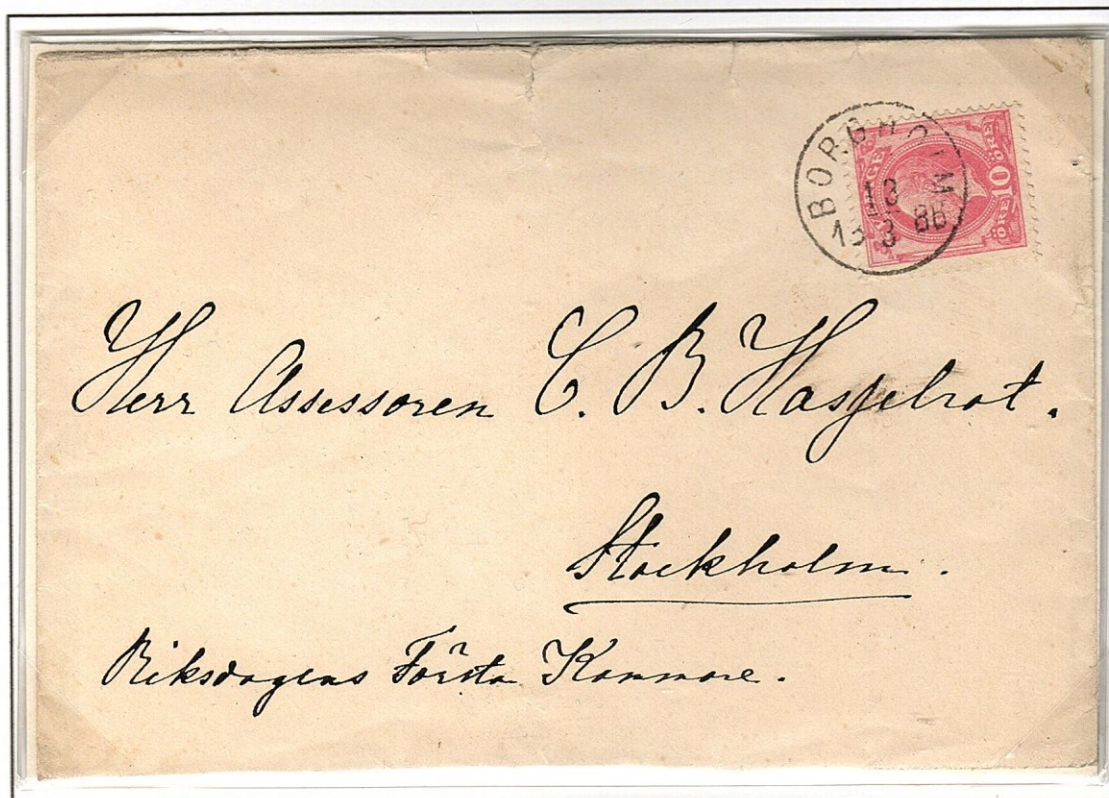 BORGHOLM
13
13 3 86
SVERIGE
ÖRE 10 ÖRE
Herr Assessoren C. B. Hasselrot.
Stockholm.
Riksdagens Första Kammare.